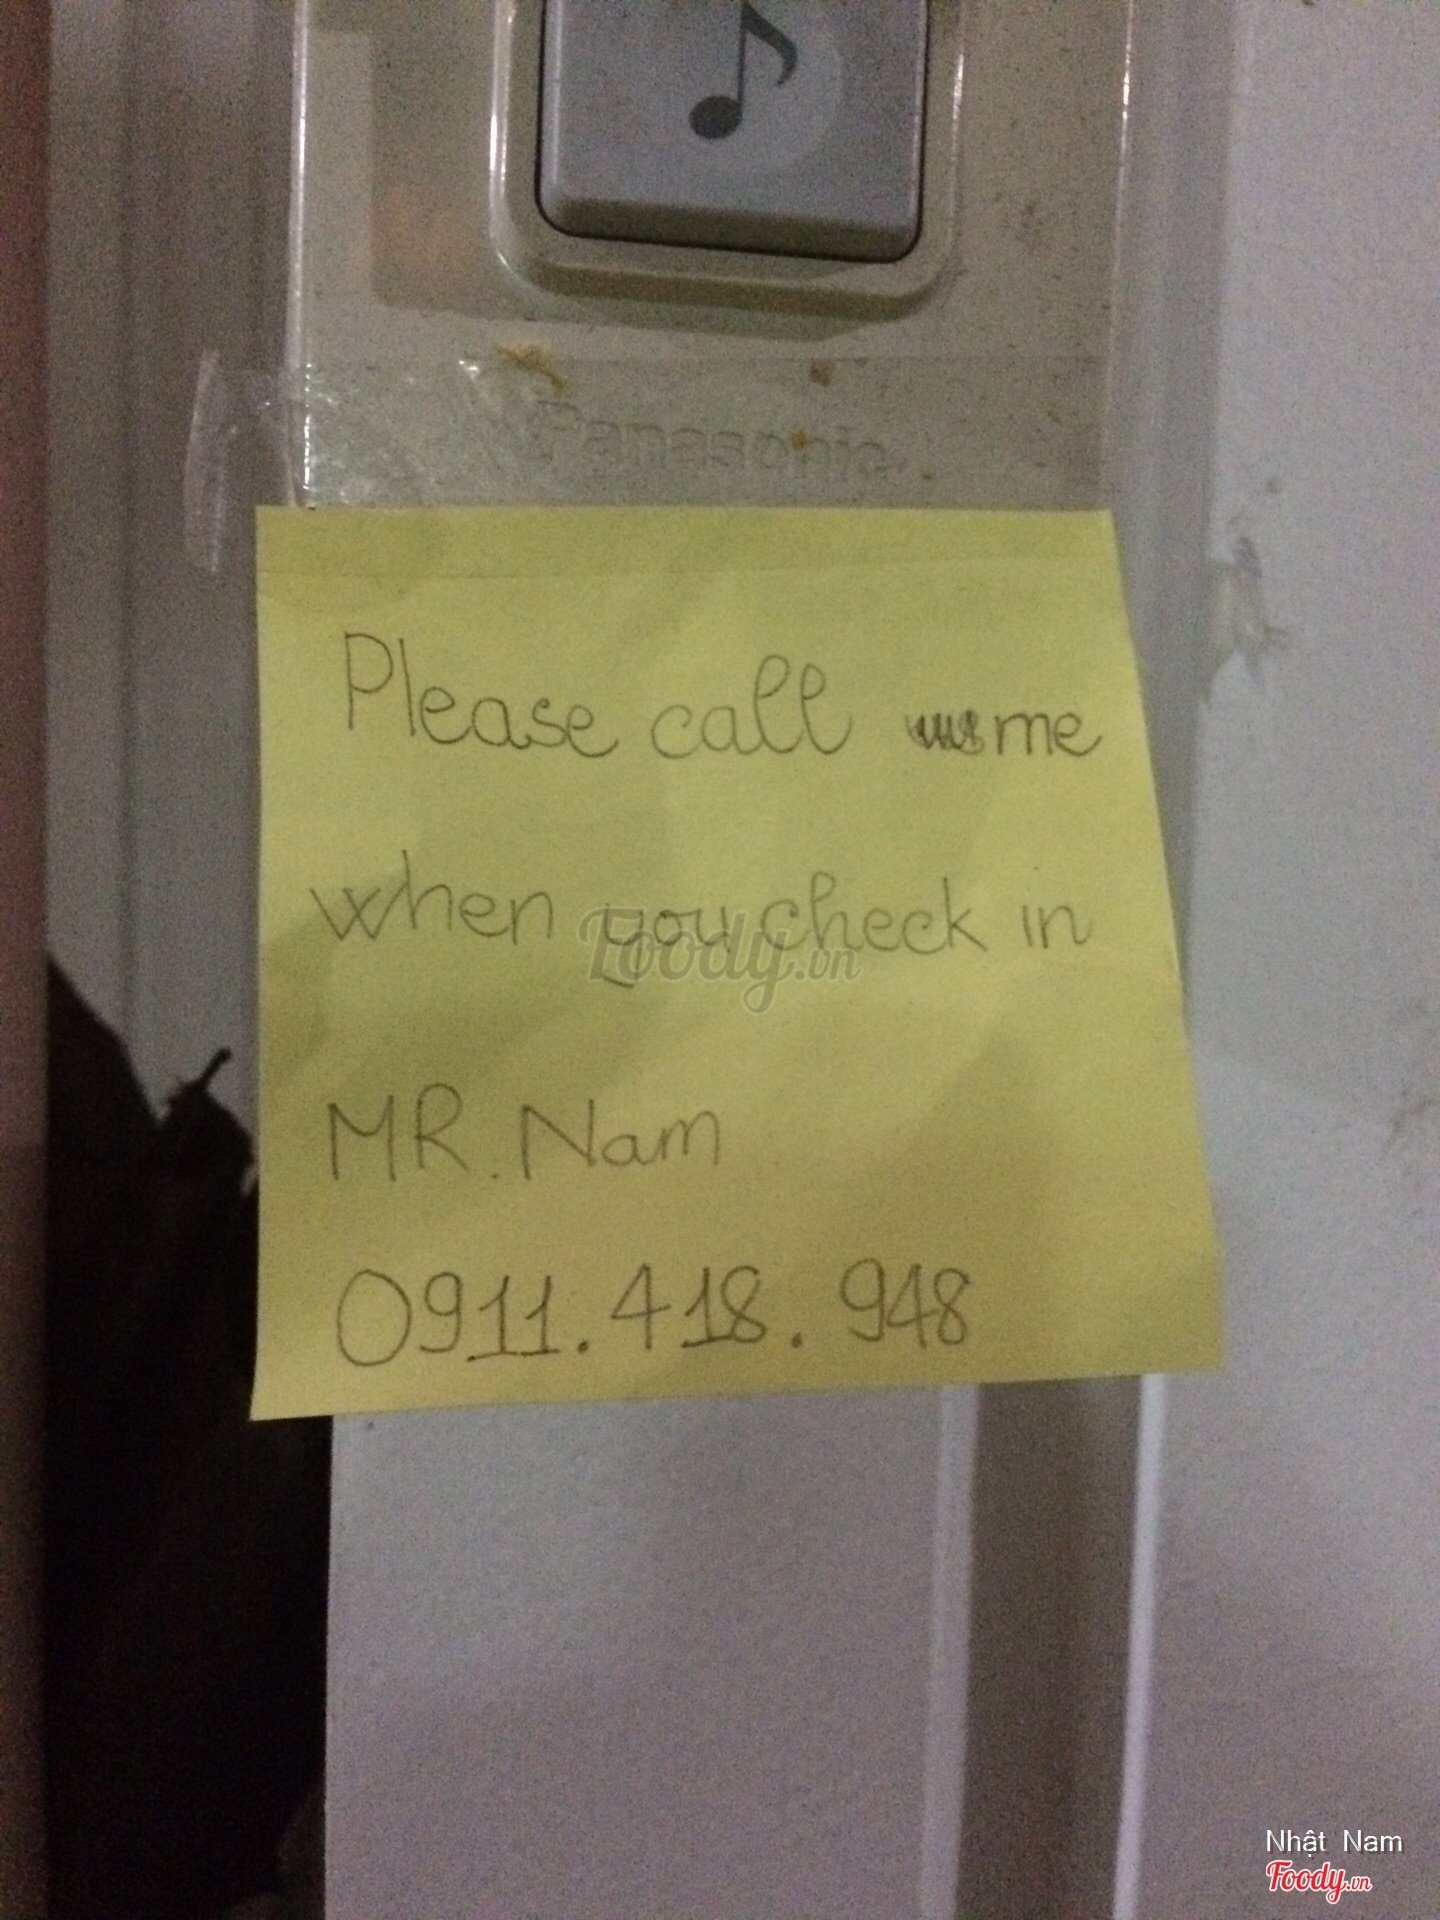 Panasonic
Please call me
when you check in
MR. Nam
0911.418.948
Foody.vn
Nhật Nam
Foody.vn